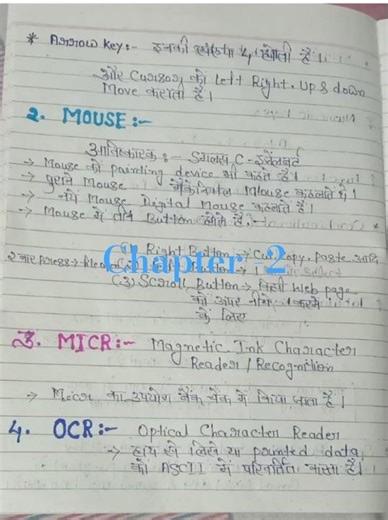 * Arrow Key:- इनकी संख्या 4 होती है।
और Cursor को Left Right. Up & down
Move कराती है।
2. MOUSE:-
आविष्कारक:- डगलस, C- इंजेलबर्ट
→ Mouse को pointing device भी कहते है।
→ पुराने Mouse मैकेनिकल Mouse कहलाते थे।
→ नये Mouse Digital Mouse कहलाते है।
→ Mouse में तीन Button होते है.-
(1) Right Button → Cut, Copy, Paste आदि
Button →
Chapter 2
(3) Scroll Button → किसी Web page
को ऊपर नीचे करने
के लिए
3. MICR:- Magnetic Ink Character
Reader / Recognition
→ Micr का उपयोग बैंक चेक में किया जाता है।
4. OCR:- Optical Character Reader
→ हाथ से लिखे या printed data,
को ASCII में परिवर्तित करता है।